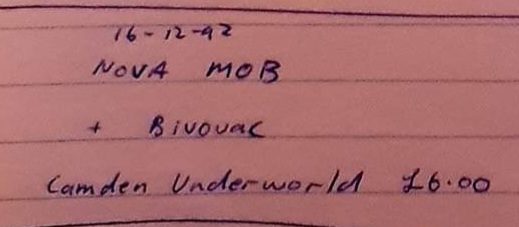 16-12-92
NOVA MOB
+ Bivouac
Camden Underworld £6.00